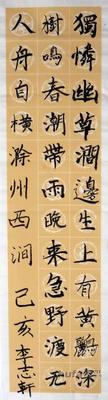 獨憐幽草澗邊生上有黃鸝深
樹鳴春潮帶雨晚来急野渡无
人舟自横滁州西涧 己亥 李志軒